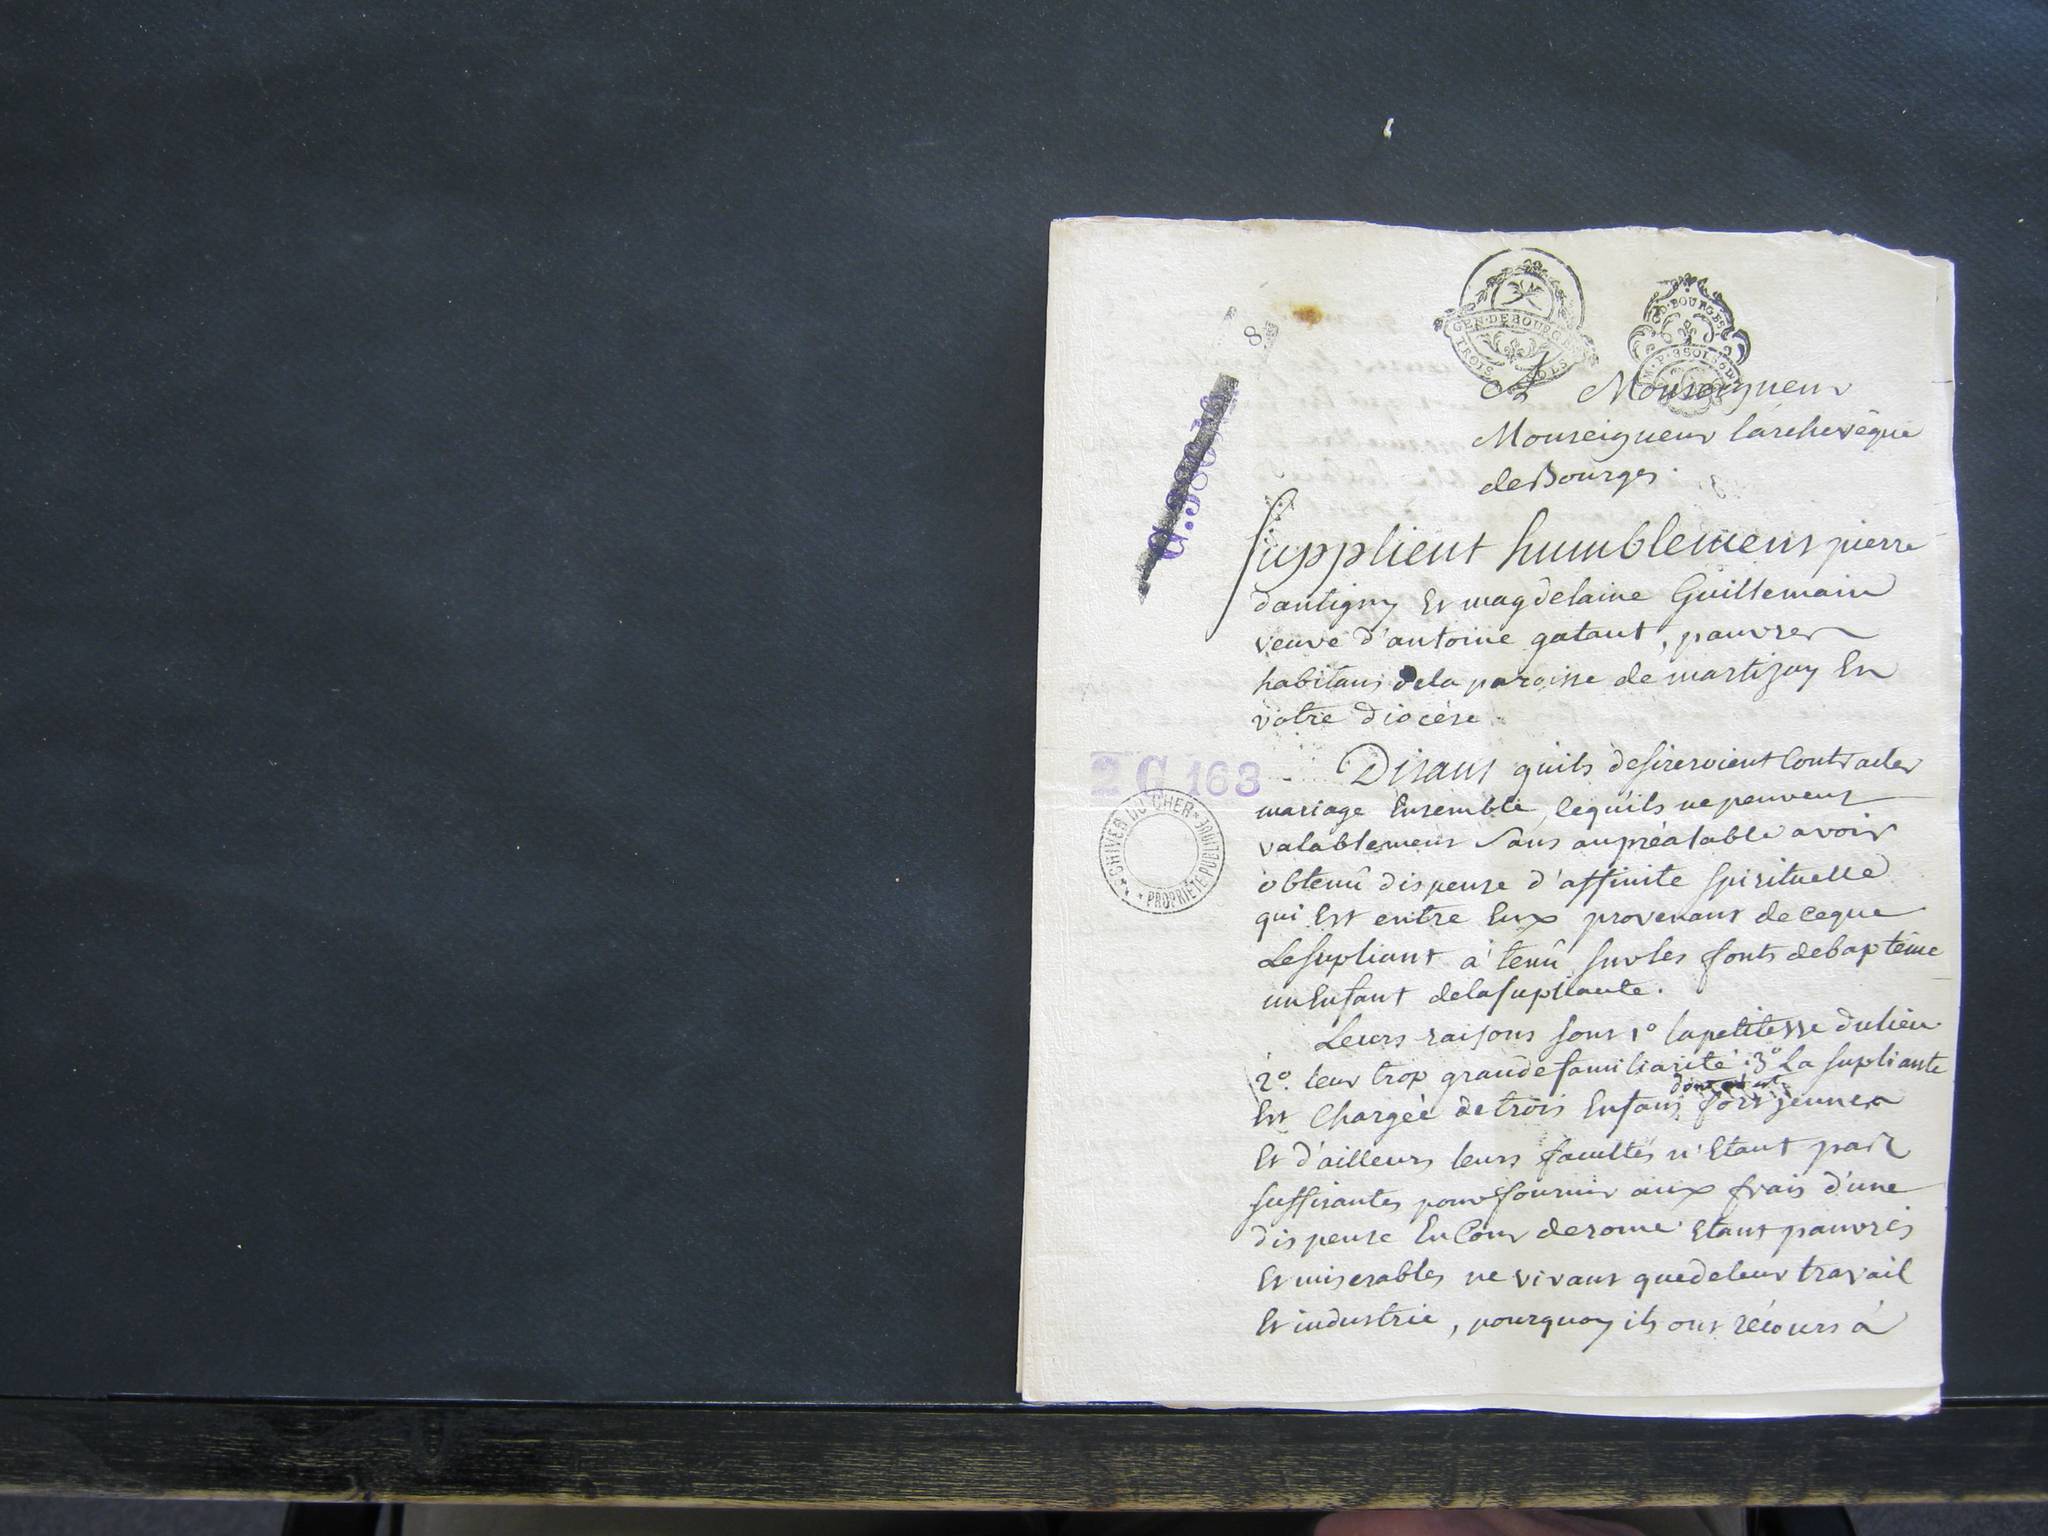 GEN·DEBOURGES
TROIS SOLS
GN·BOURGES
M·P·3SOLS·6D
8
A Monseigneur
Monseigneur l'archevêque
de Bourges.
Supplient humblement pierre
dantigny Et magdelaine Guillemain
veuve d'antoine gataut, pauvres
habitans dela paroisse de martizay En
votre diocése.
Disant quils desireroient Contracter
mariage Ensemble, lequ'ils ne peuvent
valablement Sans aupréalable avoir
obtenû dispense d'affinité Spirituelle
qui Est entre Eux provenant de ceque
Le supliant a tenû sur les fonts debaptême
un Enfant dela supliante.
Leurs raisons sont 1º la petitesse du lieu
2º. leur trop grande familiarité 3º La supliante
Est Chargée de trois Enfans fort jeunes
Et d'ailleurs leurs facultés n'Etant pas
suffisantes pour fournir aux frais d'une
dispense En Cour de rome Etant pauvres
Et miserables ne vivant que de leur travail
Et industrie, pourquoy ils ont récours à
2 G 163
ARCHIVES DU CHER
PROPRIÉTÉ PUBLIQUE